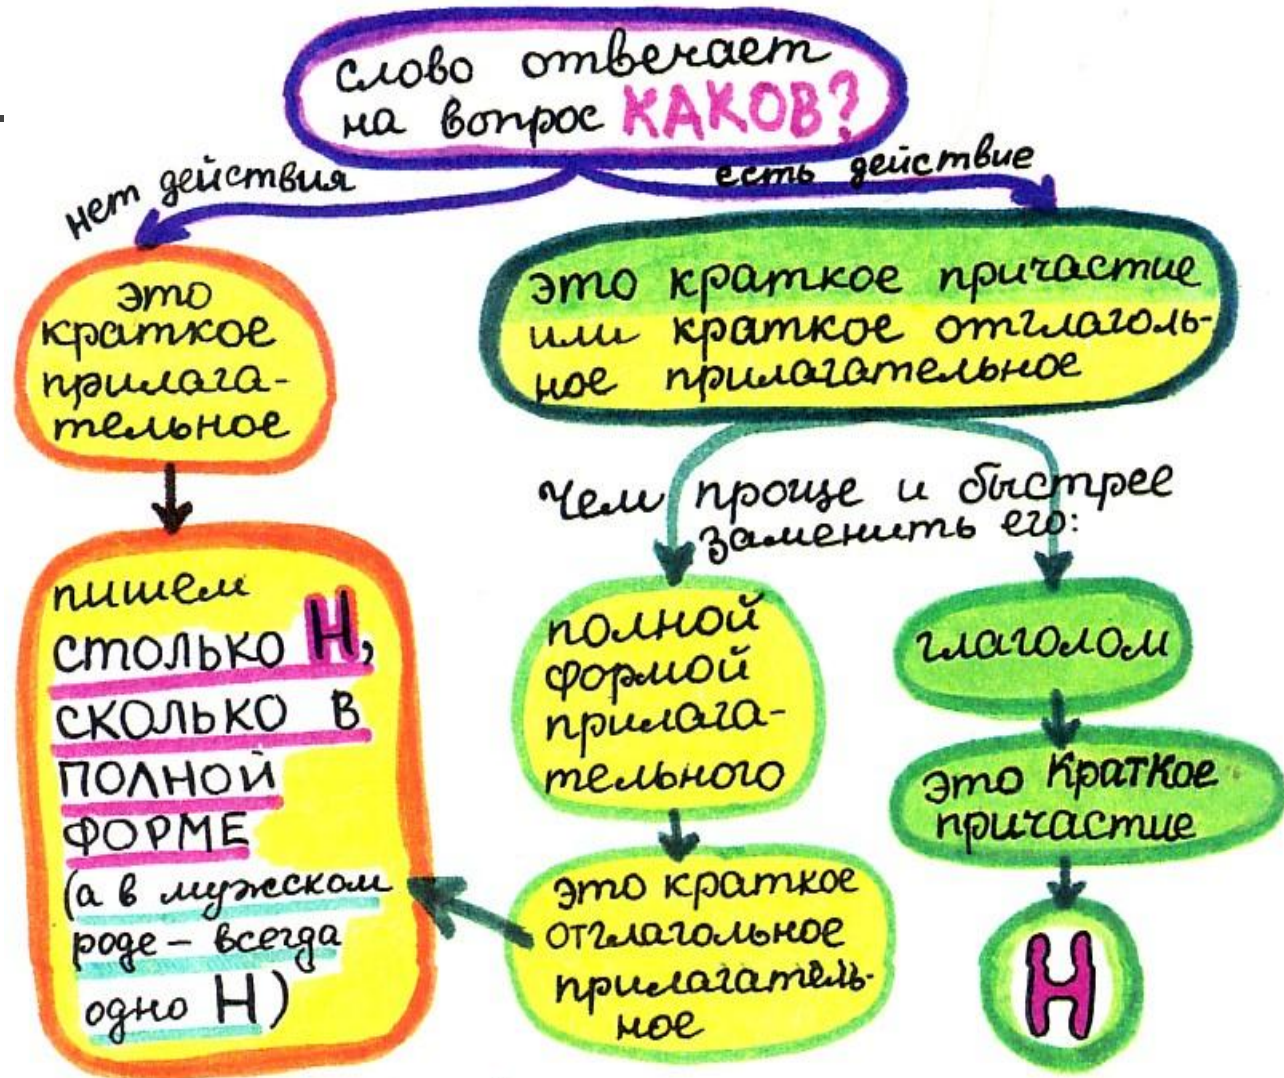 слово отвечает
на вопрос КАКОВ?
нет действия
есть действие
это
краткое
прилага-
тельное
это краткое причастие
или краткое отглаголь-
ное прилагательное
Чем проще и быстрее
заменить его:
пишем
СТОЛЬКО Н,
СКОЛЬКО В
ПОЛНОЙ
ФОРМЕ
(а в мужском
роде - всегда
одно Н)
полной
формой
прилага-
тельного
глаголом
это краткое
отглагольное
прилагатель-
ное
это Краткое
причастие
Н